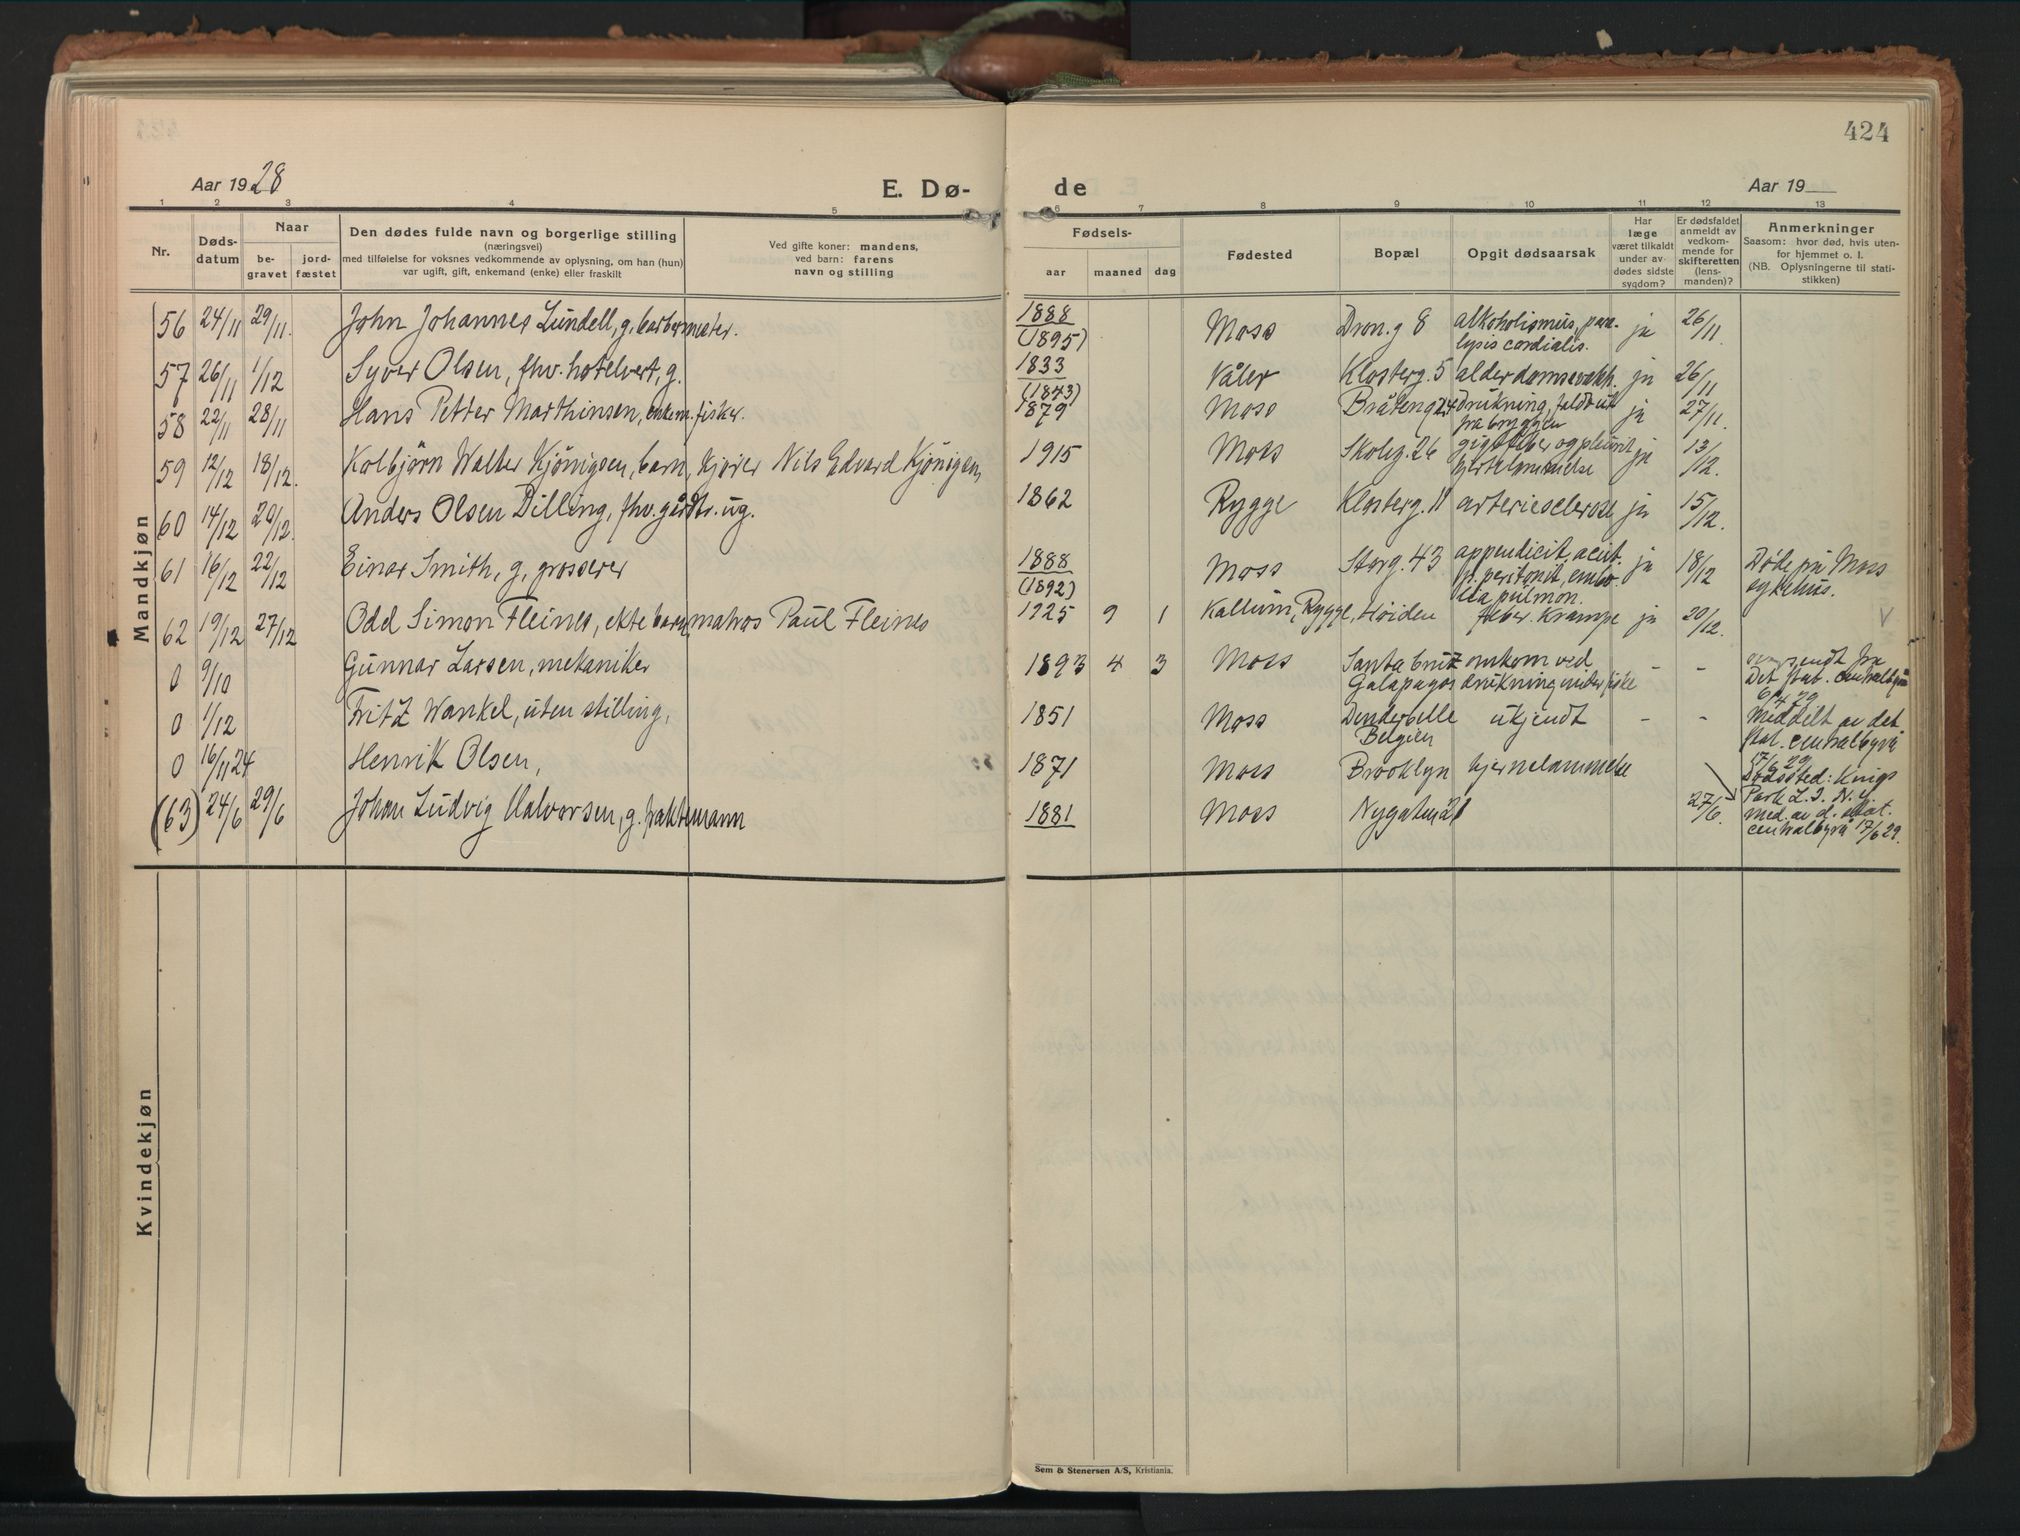 424
Aar 1928
E. Dø-
de
Aar 19
1 2 3 4 5 6 7 8 9 10 11 12 13
Nr.
Døds-
datum
Naar
be-
gravet
jord-
fæstet
Den dødes fulde navn og borgerlige stilling
(næringsvei)
med tilføielse for voksnes vedkommende av oplysning, om han (hun)
var ugift, gift, enkemand (enke) eller fraskilt
Ved gifte koner: mandens,
ved barn: farens
navn og stilling
Fødsels-
aar maaned dag
Fødested
Bopæl
Opgit dødsaarsak
Har
læge
været tilkaldt
under av-
dødes sidste
sygdom?
Er dødsfaldet
anmeldt av
vedkom-
mende for
skifteretten
(lens-
manden)?
Anmerkninger
Saasom: hvor død, hvis uten-
for hjemmet o. l.
(NB. Oplysningerne til stati-
stikken)
Mandkjøn
56 24/11 29/11. John Johannes Lundell, g. barbermester. 1888 (1895) Moss Dron.g 8 alkoholismus, para-
lysis cordialis. ja 26/11
57 26/11 1/12 Syver Olsen, fhv. hotelvert, g. 1833 (1843) Våler Klosterg. 5 ja 26/11
58 22/11 28/11 Hans Petter Marthinsen, enkem. fisker. 1879 Moss Bråteng 24 drukning, faldt ut
fra bryggen ja 27/11.
59 12/12 18/12. Kolbjørn Walter Kjønigsen, barn, kjører Nils Edvard Kjønigsen, 1915 Moss Skoleg. 26 gigtfeber og pleurit
hjertelammelse ja 13/12.
60 14/12 20/12. Anders Olsen Dilling, fhv. ug. 1862 Rygge Klosterg. 11 arteriesclerose ja 15/12.
61 16/12 22/12 Einar Smith, g, grosserer 1888 (1892) Moss Storg. 43 appendicit, acut.
p. peritonit, embo-
lia pulmon. ja 18/12 Døde på Moss
sykehus.
62 19/12 27/12 Odd Simon Fleines, ekte barn, matros Paul Fleines 1925 9 1 Kallum, Rygge, Høiden feber. Krampe ja 20/12.
0 9/10 Gunnar Larsen, mekaniker 1893 4 3 Moss Santa Cruz
Galapagos omkom ved
drukning under fiske - - fra
Det stat. centralbyrå
6/4 29
0 1/12 Fritz Wankel, uten stilling, 1851 Moss Denderbelle
Belgien ukjendt - - Meddelt av det
stat. centralbyrå
17/6 29
0 16/11 24 Henrik Olsen, 1871 Moss Brooklyn hjernelammelse Dødssted: Kings
Park L. I. N. Y.
med. av d. stat.
centralbyrå 17/6 29.
(63) 24/6 29/6 Johan Ludvig Halvorsen, g. 1881 Moss Nygaten 21 27/6.
Kvindekjøn
Sem & Stenersen A/S, Kristiania.